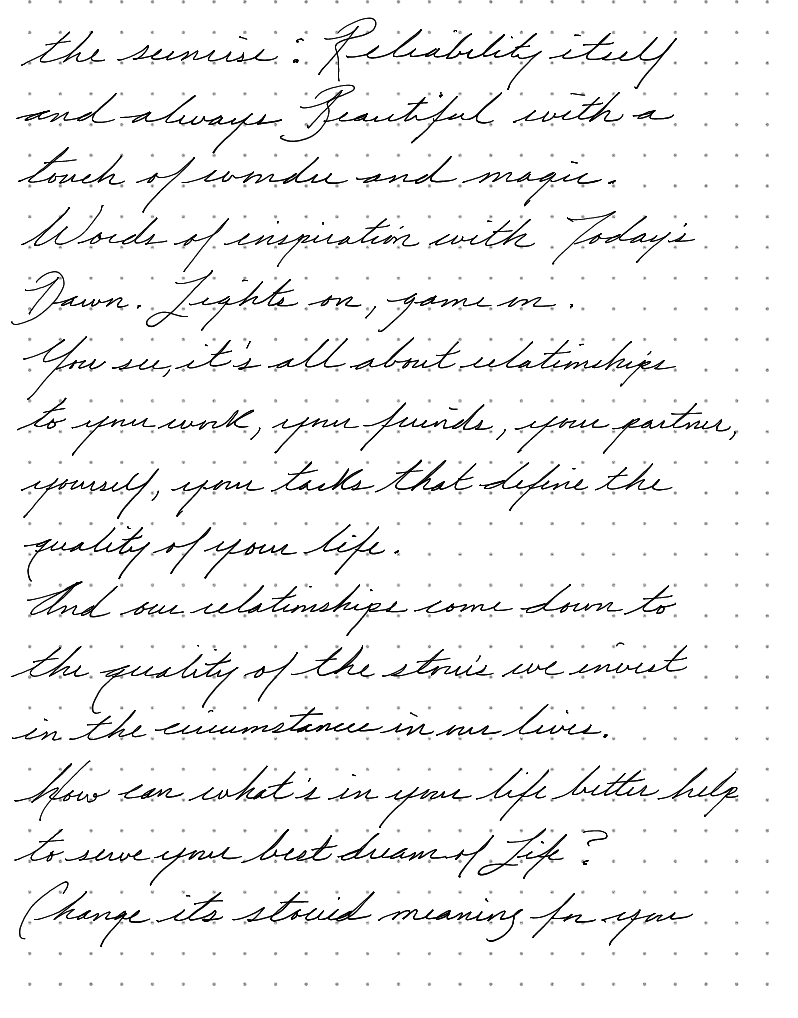 the sunrise: Reliability itself
and always Beautiful with a
touch of wonder and magic.
Words of inspiration with Today's
Dawn. Lights on, game on.
You see, it's all about relationships
to your work, your friends, your partner,
yourself, your tasks that define the
quality of your life.
And our relationships come down to
the quality of the stories we invest
in the circumstance in our lives.
How can what's in your life better help
to serve your best dream of Life?
Change its storied meaning for you